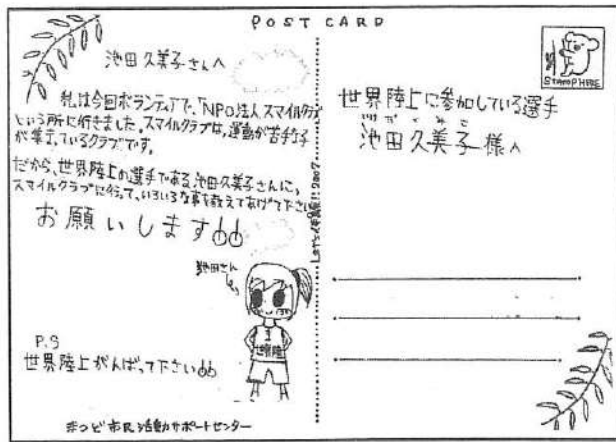 POST CARD
池田久美子さんへ
私は今回ボランティアで、「NPO法人スマイルクラブ」
という所に行きました。スマイルクラブは、運動が苦手な子
が集まっているクラブです。
だから、世界陸上の選手である池田久美子さんに、
スマイルクラブに行って、いろいろな事を教えてあげて下さい
お願いします
池田さん
P.S
世界陸上がんばって下さい
まつど市民活動サポートセンター
STAMP HERE
世界陸上に参加している選手
いけだ くみこ
池田久美子様へ